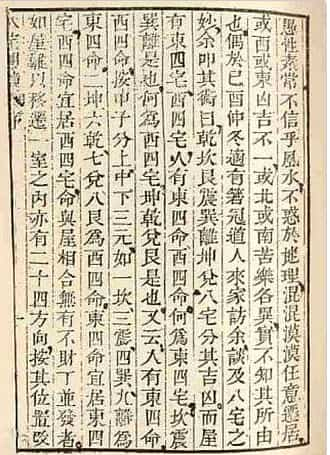 愚性素常不信乎風水不惑於地理混混漠漠任意遷居
或西或東凶吉不一或北或南苦樂各異實不知其所由
也偶於己酉仲冬適有箬冠道人來家訪余談及八宅之
妙余叩其術曰乾坎艮震巽離坤兌八宅分其吉凶而屋
有東四宅西四宅人有東四命西四命何為東四宅坎震
巽離是也何為西四宅坤乾兌艮是也又云人有東四命
西四命按甲子分上中下三元如一坎三震四巽九離為
東四命二坤六乾七兌八艮為西四命東四命宜居東四
宅西四命宜居西四宅命與屋相合無有不財丁並發者
如屋難以移遷一室之內亦有二十四方向按其位置毁